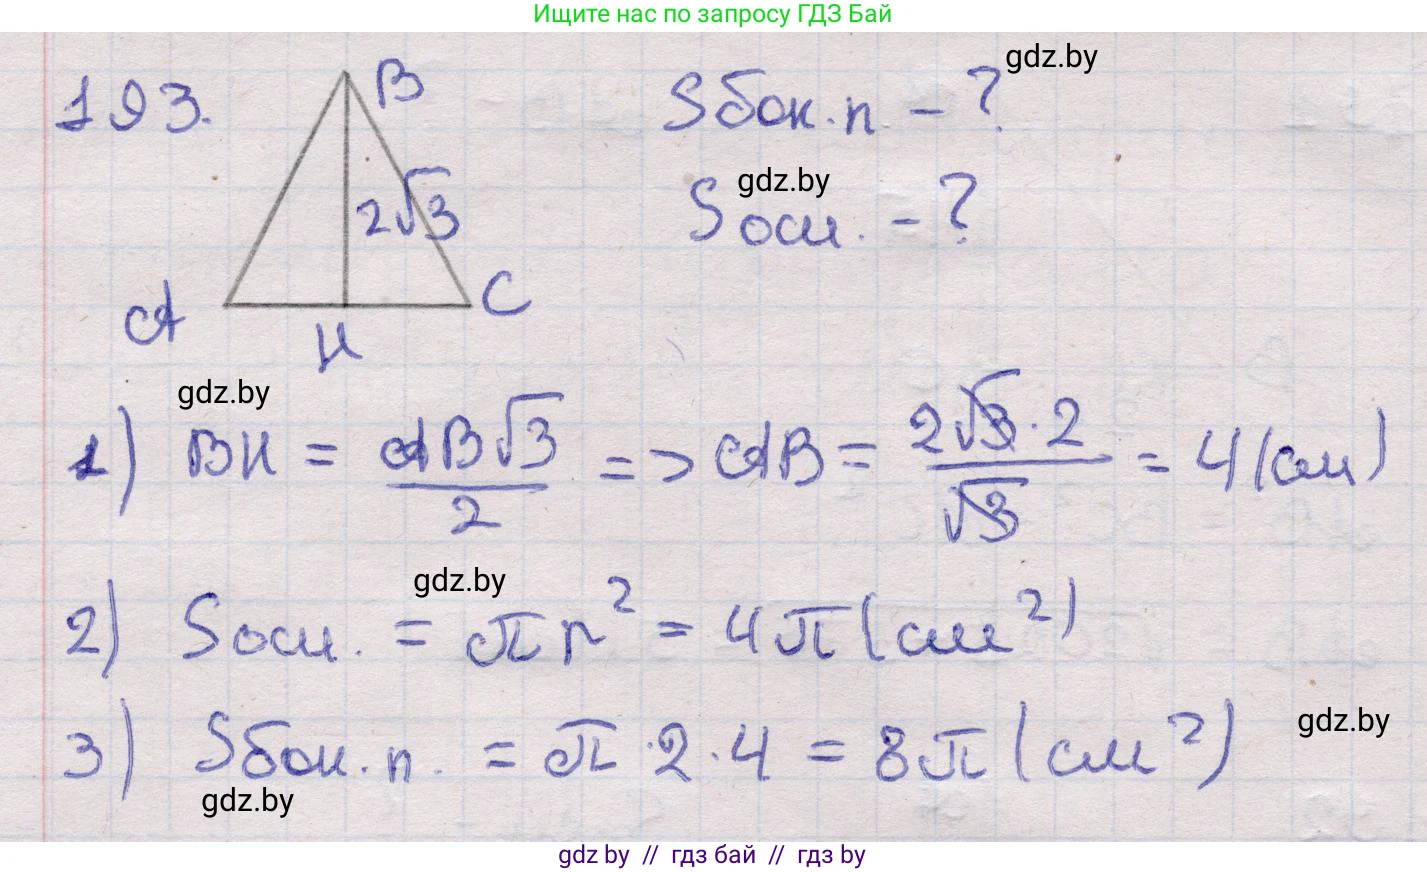 Ищите нас по запросу ГДЗ Бай
gdz.by
193.
B
Sбок.п. - ?
2√3
gdz.by
Sосн. - ?
A
H
C
gdz.by
1) BH = AB√3/2 => AB = 2√3·2/√3 = 4 (см)
gdz.by
2) Sосн. = πr² = 4π (см²)
gdz.by
3) Sбок.п. = π·2·4 = 8π (см²)
gdz.by
gdz by // гдз бай // гдз by